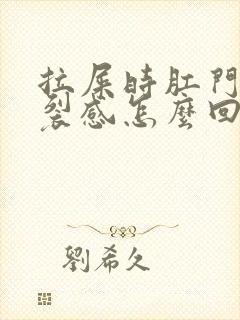 拉屎時肛門
裂感怎麼回
劉希久